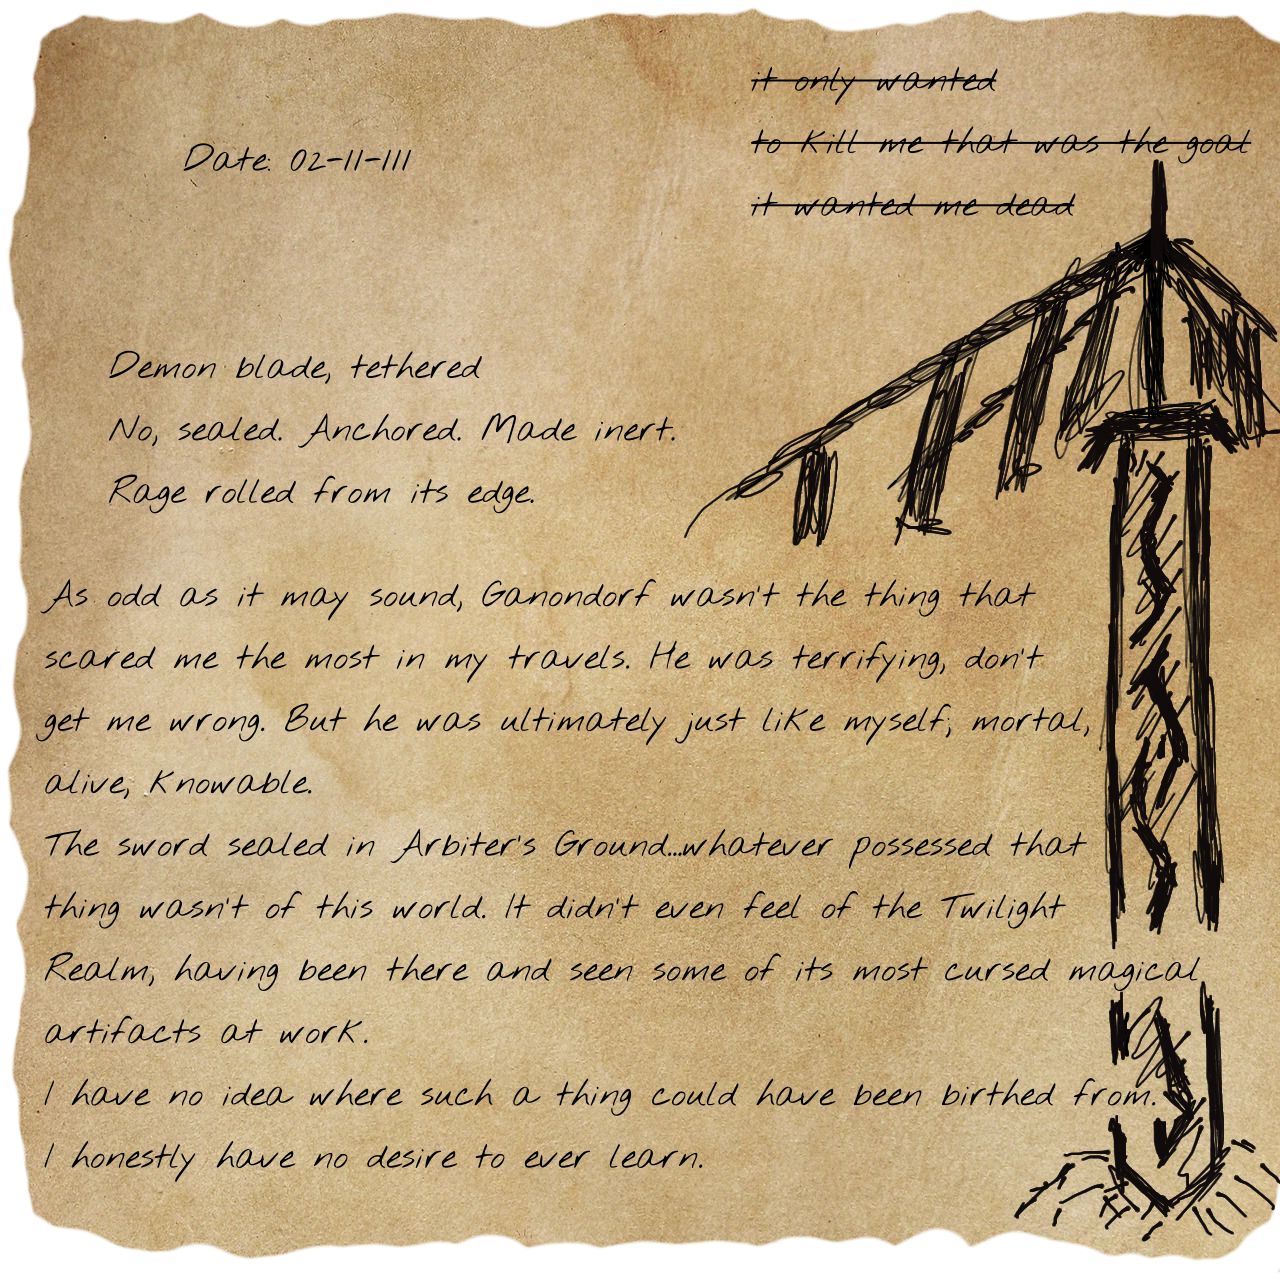 it only wanted
to kill me that was the goal
it wanted me dead
Date: 02-11-111
Demon blade, tethered
No, sealed. Anchored. Made inert.
Rage rolled from its edge.
As odd as it may sound, Ganondorf wasn't the thing that
scared me the most in my travels. He was terrifying, don't
get me wrong. But he was ultimately just like myself; mortal,
alive, knowable.
The sword sealed in Arbiter's Ground...whatever possessed that
thing wasn't of this world. It didn't even feel of the Twilight
Realm, having been there and seen some of its most cursed magical
artifacts at work.
I have no idea where such a thing could have been birthed from.
I honestly have no desire to ever learn.